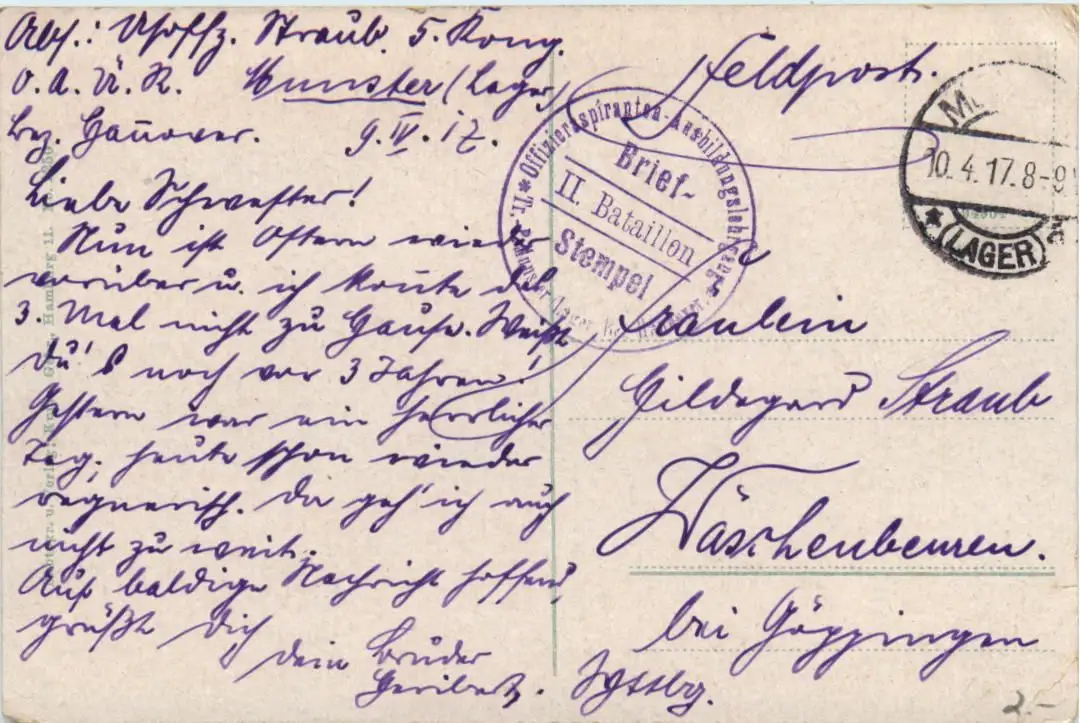 Abs.: Uhoffz. Straub. 5. Komp.
O. A. Ü. K. Munster (Lager)
Bez. Hannover. 9. IV. 17.
Liebe Schwester!
Nun ist Ostern wieder
vorüber u. ich konnte das
3. Mal nicht zu Hause. Weißt
Du's noch vor 3 Jahren!
Gestern war ein herrlicher
Tag, heute schon wieder
regnerisch. Da geh' ich auch
nicht zu weit.
Auf baldige Nachricht hoffend,
grüßt Dich
dein Bruder
Heribert.
Feldpost.
Offiziersaspiranten-Ausbildungslehrgang
Brief-
II. Bataillon
Stempel
M
10.4.17.8-9
(LAGER)
Fräulein
Hildegard Straub
Wäschenbeuren.
bei Göppingen
Wttbg.
2.-